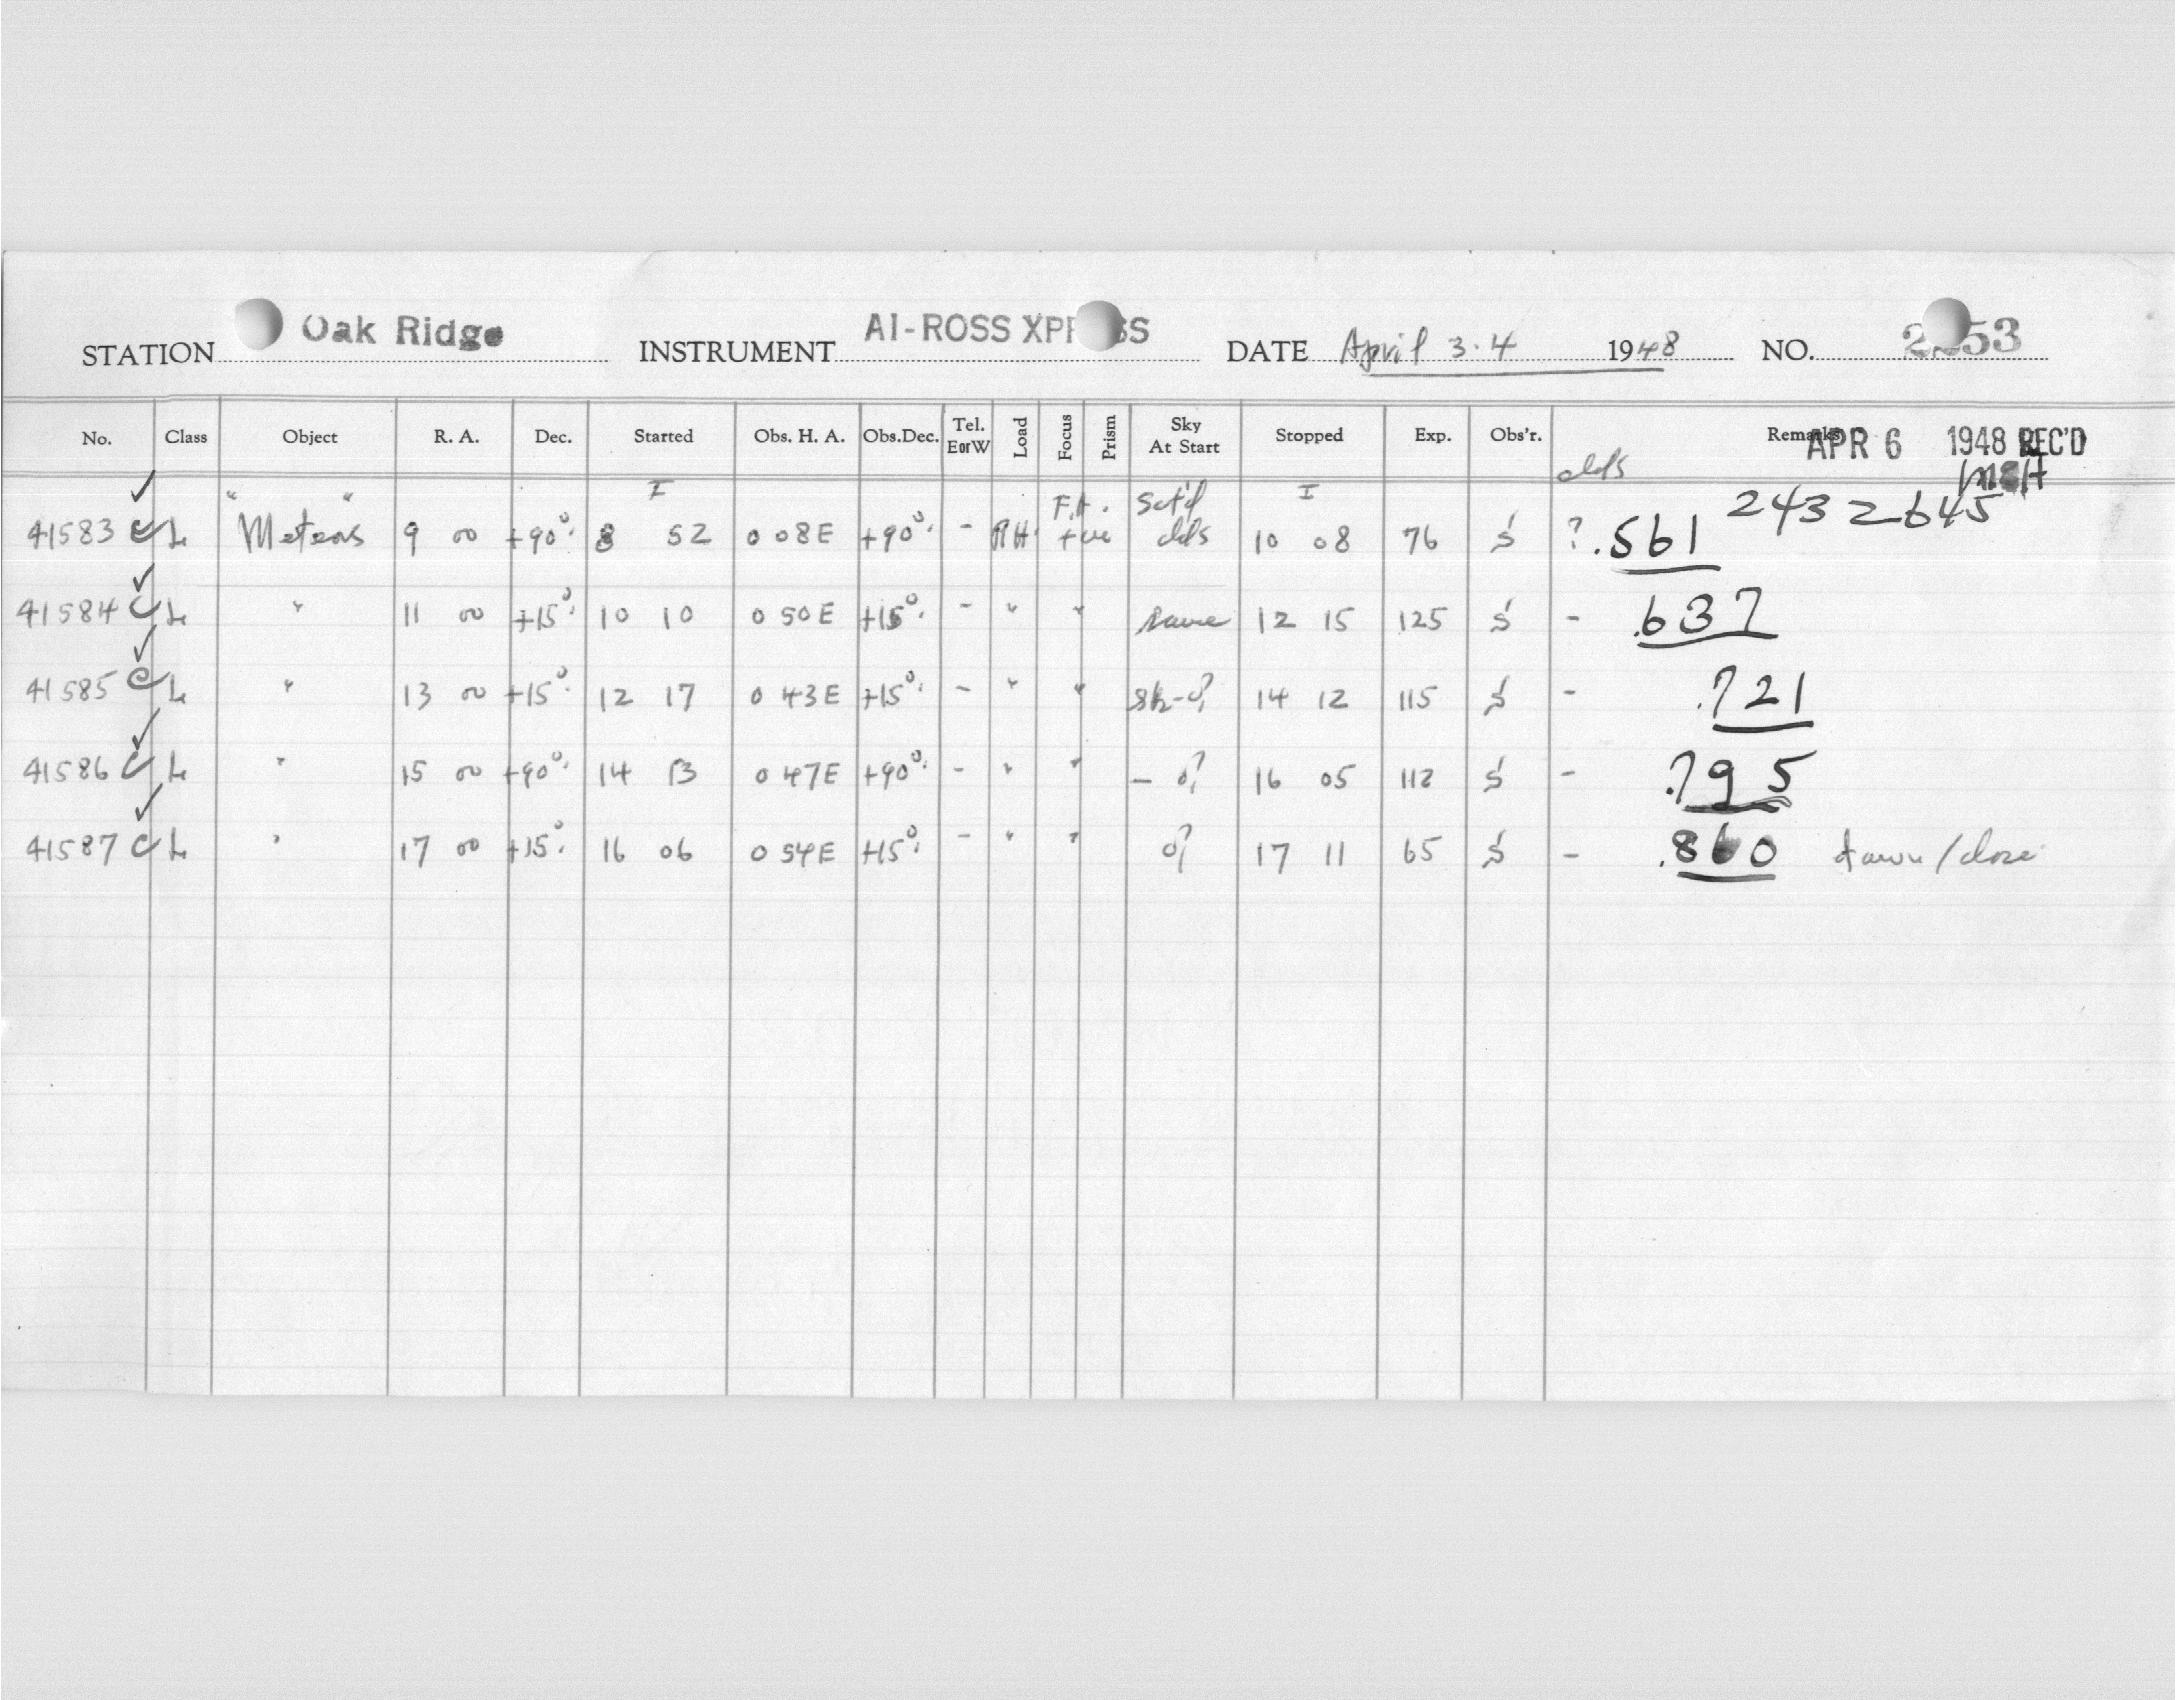 STATION Oak Ridge INSTRUMENT AI-ROSS XPR SS DATE April 3.4 1948 NO. 2 53
No. Class Object R. A. Dec. Started Obs. H. A. Obs.Dec. Tel. E or W Load Focus Prism Sky At Start Stopped Exp. Obs'r. Remarks APR 6 1948 REC'D
clds MBH
" " I F.H. Sct'd I 2432645
41583 C L Meteors 9 00 +90°. 8 52 0 08E +90°. - RH. +ve clds 10 08 76 S ? .561
41584 C L " 11 00 +15°. 10 10 0 50E +15°. - " " same 12 15 125 S - .637
41585 C L " 13 00 +15°. 12 17 0 43E +15°. - " " 14 12 115 S - .721
41586 C L " 15 00 +90°. 14 13 0 47E +90°. - " " 16 05 112 S - .795
41587 C L " 17 00 +15°. 16 06 0 54E +15°. - " " 17 11 65 S - .860 dawn/close